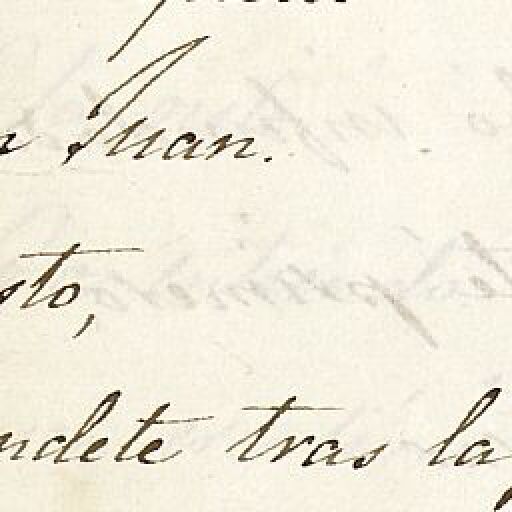 Juan.
sto,
ndete tras la